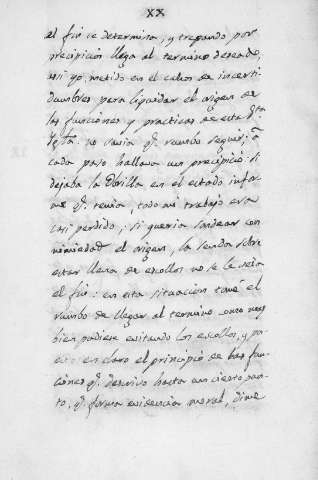 XX
al fin se determina, y trepando por
precipicios llega al termino deseado;
assi yo, metido en el cahos de incerti
dumbres, para liquidar el origen de
las funciones y practicas de esta Sta
Iglª. no savia qe. rumbo seguir; á
cada paso hallava un precipicio: si
dejaba la Obrilla en el estado infor
me qe. tenia, todo mi trabajo era
casi perdido; si queria sondear con
nimiedad el origen, la senda sobre
estar llena de escollos no se le veia
el fin: en esta situacion tomé el
rumbo de llegar al termino como mas
bien pudiese evitando los escollos, y po
en claro el principio de las fun
ciones qe. descrivo hasta un cierto pun
to, qe. forma evidencia moral, dime